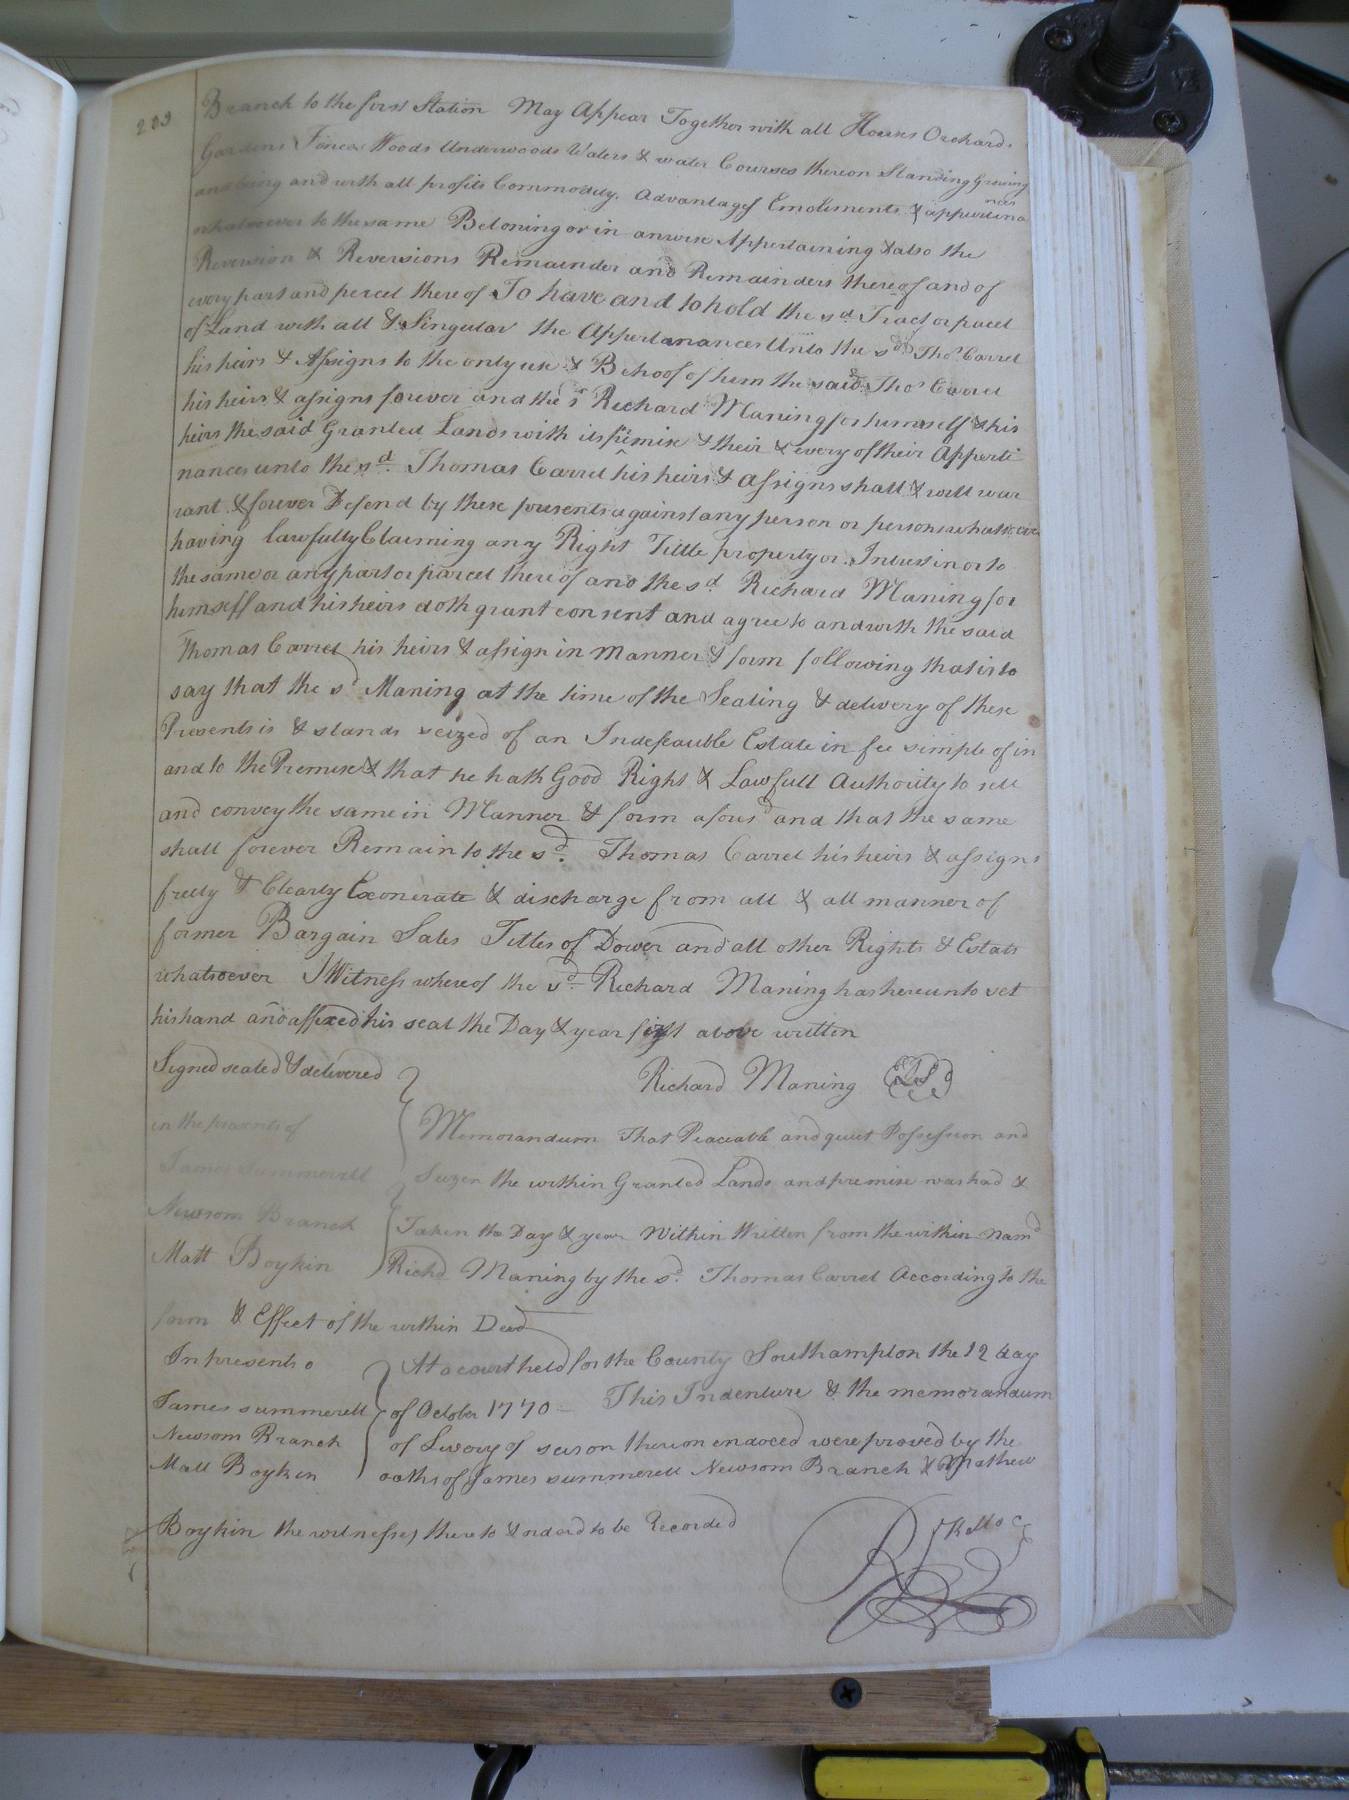 203
Branch to the first Station May Appear Together with all Houses Orchards
Gardens Fences Woods Underwoods Waters & water Courses thereon Standing Growing
and being and with all profits Commodity. Advantages Emoliments & appurtina
nces
whatsoever to the same Beloning or in anwise Appertaining & also the
Reversion & Reversions Remainder and Remainders thereof and of
every part and percel there of To have and to hold the sd. Tract or pacel
of Land with all & Singular the Appertanances Unto the sd. Thos. Carrel
his heirs & Assigns to the only use & Behoof of him the said Thos Carrel
his heirs & assigns forever and the sd Richard Maning for himself & his
heirs the said Granted Lands with its premise & their & every of their Apperti
nances unto the sd. Thomas Carrel his heirs & assigns shall & will war
rant & forever Defend by these presents against any person or persons whatsoever
having lawfully Claiming any Right Tittle property or Intrest in or to
the same or any part or parcel there of and the sd. Richard Maning for
himself and his heirs doth grant consent and agree to and with the said
Thomas Carrel his heirs & assign in Manner & form following that is to
say that the sd Maning at the time of the Sealing & delivery of these
Presents is & stands seized of an Indefeauble Estate in fee simple of in
and to the Premise & that he hath Good Right & Lawfull Authority to sell
and convey the same in Manner & form afousd and that the same
shall forever Remain to the sd. Thomas Carrel his heirs & assigns
freely & Clearly Exonerate & discharge from all & all manner of
former Bargain Sales Tittles of Dower and all other Rights & Estats
whatsoever I Witness where of the sd. Richard Maning has hereunto set
his hand and affixed his seal the Day & year first above written
Signed sealed & delivered
Richard Maning LS
in the presents of
Memorandum That Peaceable and quiet Possession and
James Summerell
Seizen the within Granted Lands and premise was had &
Newsom Branch
Taken the Day & year Within Written from the within Namd
Matt Boykin
Richd Maning by the sd. Thomas Carrel According to the
form & Effect of the within Deed
In presents o
At a court held for the County Southampton the 12 day
James summerell
of October 1770 This Indenture & the memorandum
Newsom Branch
of Livery of seison thereon endoced were proved by the
Matt Boykin
oaths of James summerell Newsom Branch & Mathew
Boykin the witnesses there to & nderd to be Recorded